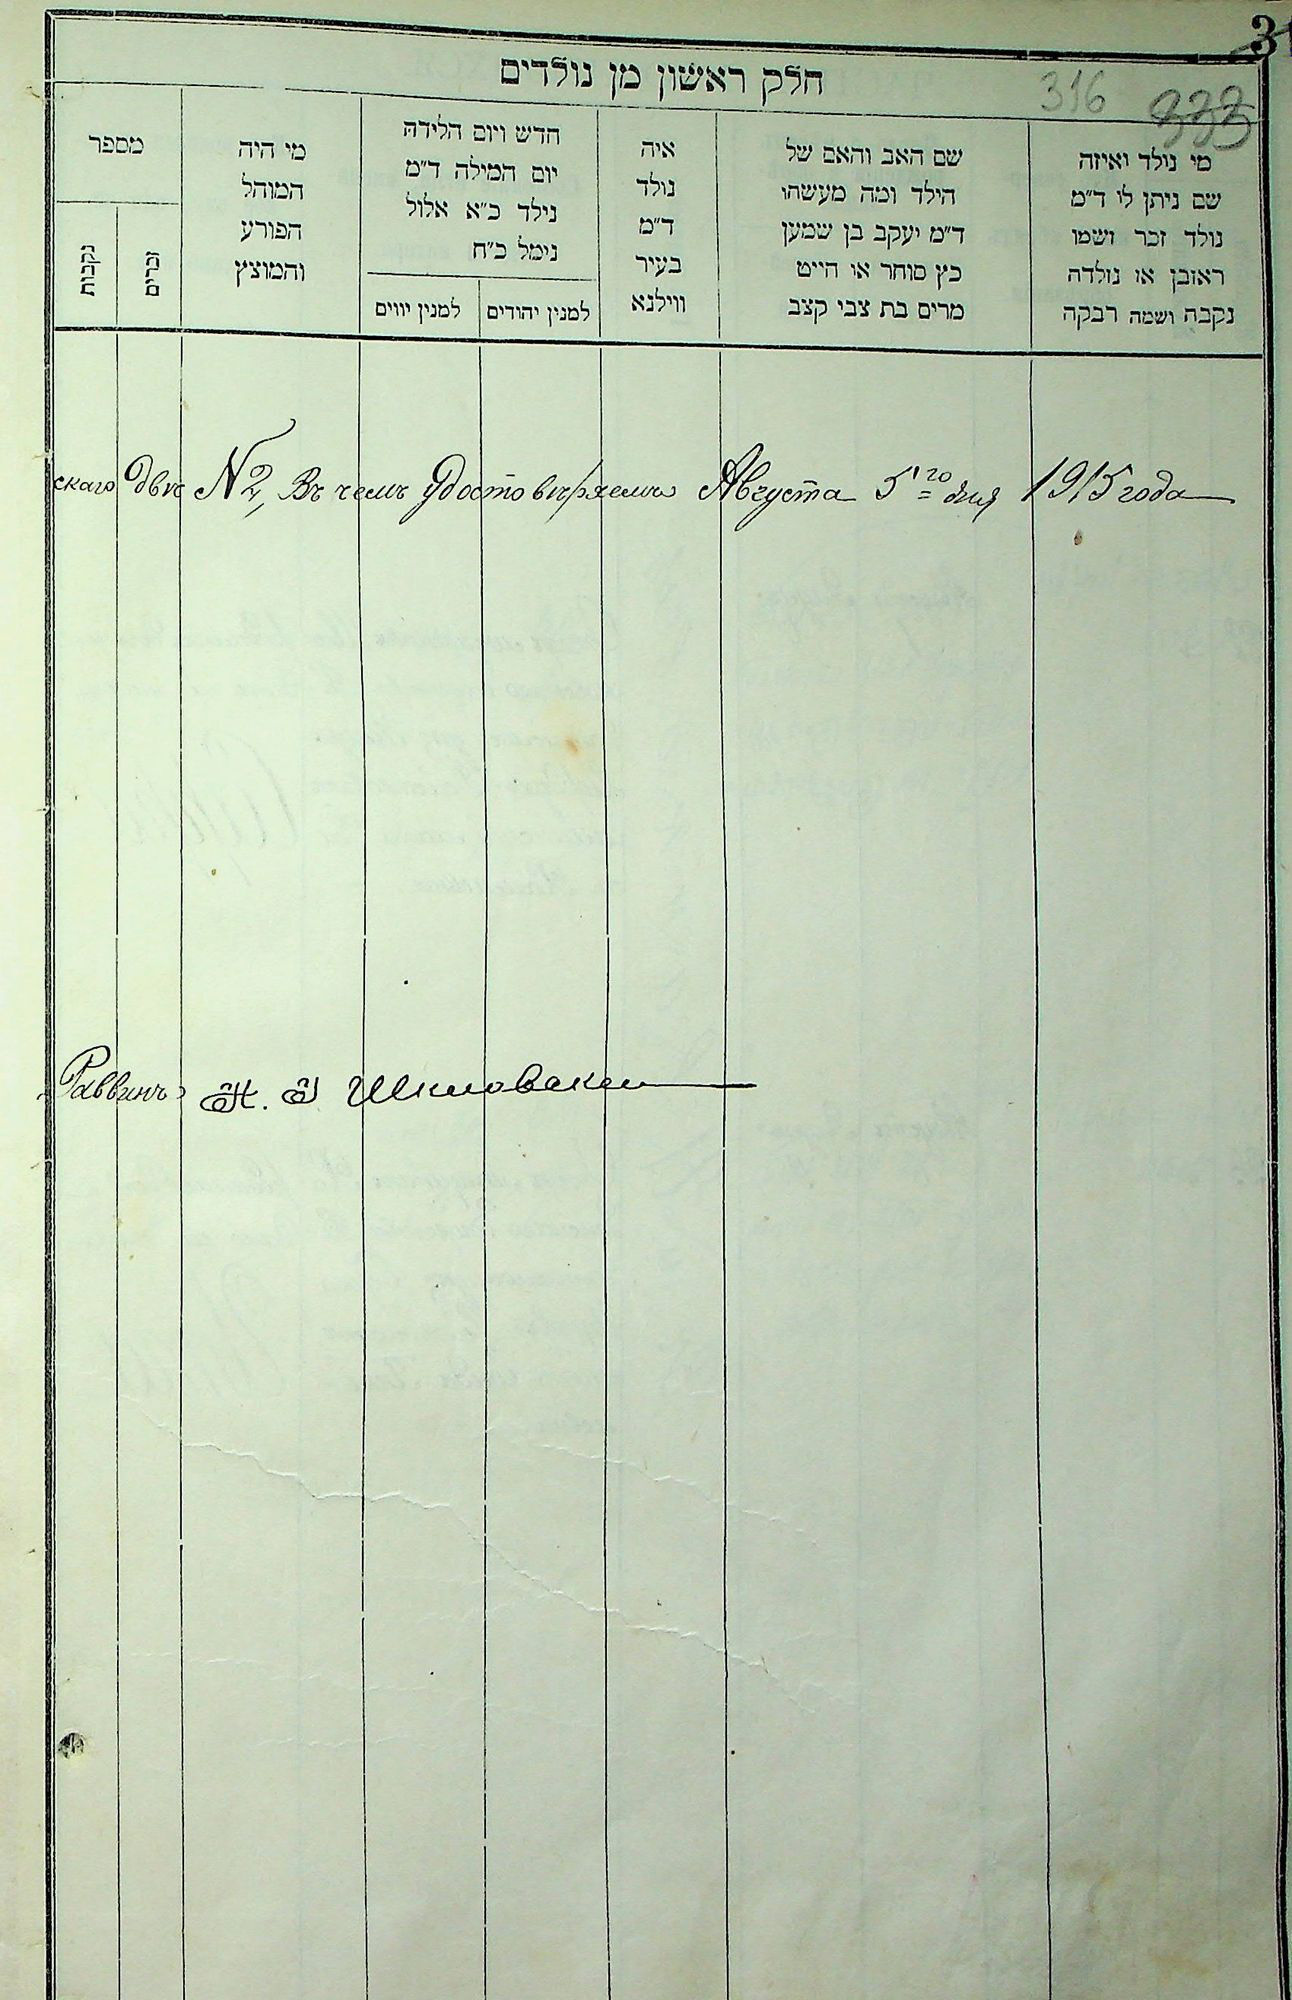 חלק ראשון מן נולדים
316
333
מי נולד ואיזה
שם ניתן לו ד״מ
נולד זכר ושמו
ראובן או נולדה
נקבה ושמה רבקה
שם האב והאם של
הילד ומה מעשהו
ד״מ יעקב בן שמעון
כץ סוחר או חייט
מרים בת צבי קצב
איה
נולד
ד״מ
בעיר
ווילנא
חדש ויום הלידה
יום המילה ד״מ
נילד כ״א אלול
נימל כ״ח
למנין יהודים
למנין יווים
מי היה
המוהל
הפורע
והמוצץ
מספר
זכרים
נקבות
скаго двѣ №2, Въ чемъ удостовѣряемъ Августа 5го дня 1915 года
Раввинъ